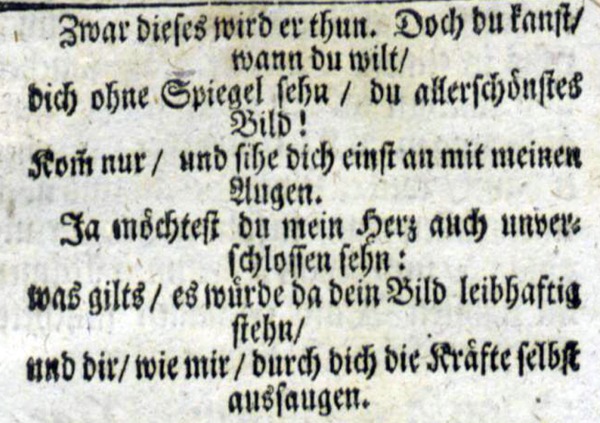 Zwar dieses wird er thun. Doch du kanst/
wann du wilt/
dich ohne Spiegel sehn / du allerschönstes
Bild!
Kom̃ nur / und sihe dich einst an mit meinen
Augen.
Ja möchtest du mein Herz auch unver-
schlossen sehn:
was gilts / es würde da dein Bild leibhaftig
stehn/
und dir/ wie mir / durch dich die Kräfte selbst
aussaugen.